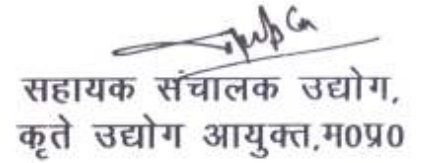 सहायक संचालक उद्योग,
कृते उद्योग आयुक्त,म0प्र0